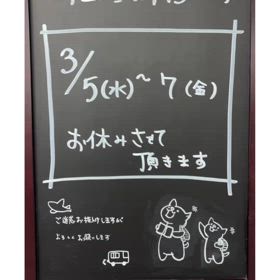 3/5(水)~7(金)
お休みさせて
頂きます
ご迷惑お掛けしますが
よろしくお願いします